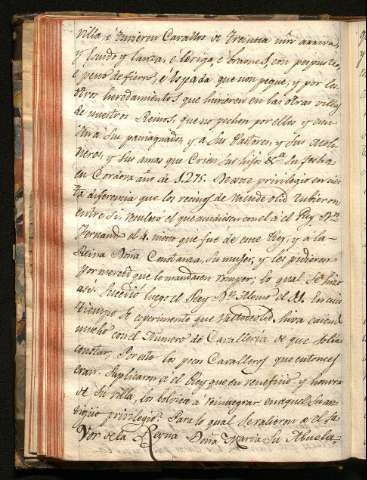 villa, é tuvieren Cavallos de treinta mrs. arriva,
y Escudo, y lanza, é loriga, é brasoneras, é perpunte
é capiello de fierro, é espada, que non peche, y por los
otros heredamientos que hubieren en las otras villas
de nuestros Reinos, que no pechen por ellos y
sus paniaguados, y a sus Pastores, y sus moli-
neros, y sus amas que Crien sus hijos &c. Su fecha
en Cordova año de 1275. Deste privilegio en cier-
ta diferencia que los vecinos de Valladolid tubieron
entre si, resultó el que acudiesen con él a el Rey Dn.
Fernando el 4. nieto que fue de este Rey, y a la
Reina Doña Constanza, su mujer, y les pidieron
por merced que lo mandasen romper, lo qual se hizo
asi. Sucedió luego el Rey Dn. Alonso el 11. En cuio
tiempo se experimentó que Valladolid havia caido
mucho con el Numero de Cavalleria de que solia
constar. Por esto los pocos Cavalleros que entonces
eran, suplicaron a el Rey que en beneficio y honrra
de su villa, los bolviese a reintegrar en aquel su an-
tiguo privilegio: Para lo qual se valieron de el fa-
vor de la Reyna Doña Maria su Abuela.